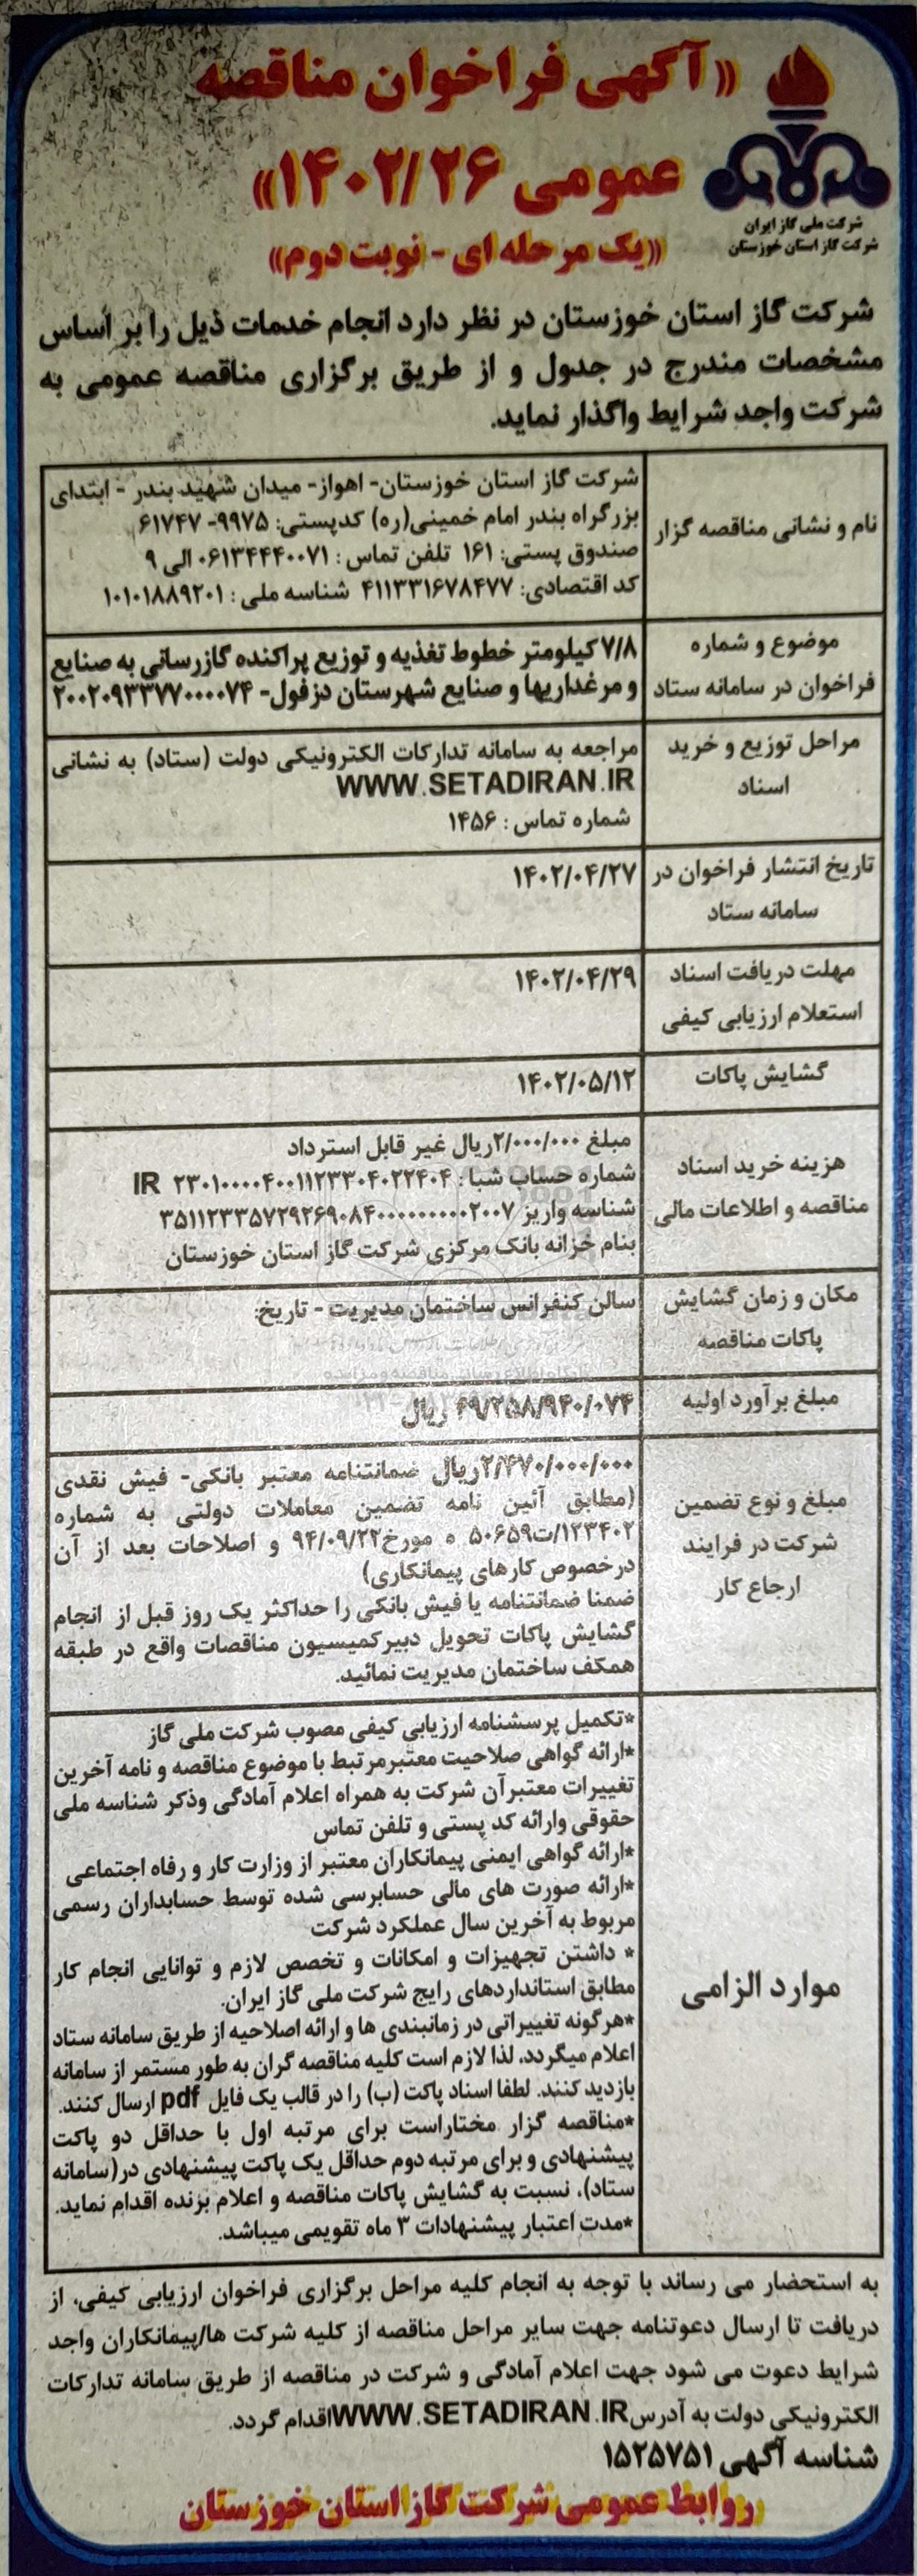 «آگهی فراخوان مناقصه
عمومی ۱۴۰۲/۲۶»
«یک مرحله ای - نوبت دوم»
شرکت ملی گاز ایران
شرکت گاز استان خوزستان
شرکت گاز استان خوزستان در نظر دارد انجام خدمات ذیل را بر اساس
مشخصات مندرج در جدول و از طریق برگزاری مناقصه عمومی به
شرکت واجد شرایط واگذار نماید.
نام و نشانی مناقصه گزار
شرکت گاز استان خوزستان- اهواز- میدان شهید بندر - ابتدای
بزرگراه بندر امام خمینی(ره) کدپستی: ۹۹۷۵- ۶۱۷۴۷
صندوق پستی: ۱۶۱ تلفن تماس : ۰۶۱۳۴۴۴۰۰۷۱ الی ۹
کد اقتصادی: ۴۱۱۳۳۱۶۷۸۴۷۷ شناسه ملی : ۱۰۱۰۱۸۸۹۲۰۱
موضوع و شماره
فراخوان در سامانه ستاد
۷/۸ کیلومتر خطوط تغذیه و توزیع پراکنده گازرسانی به صنایع
و مرغداریها و صنایع شهرستان دزفول- ۲۰۰۲۰۹۳۳۷۷۰۰۰۰۷۴
مراحل توزیع و خرید
اسناد
مراجعه به سامانه تدارکات الکترونیکی دولت (ستاد) به نشانی
WWW.SETADIRAN.IR
شماره تماس : ۱۴۵۶
تاریخ انتشار فراخوان در
سامانه ستاد
۱۴۰۲/۰۴/۲۷
مهلت دریافت اسناد
استعلام ارزیابی کیفی
۱۴۰۲/۰۴/۲۹
گشایش پاکات
۱۴۰۲/۰۵/۱۲
هزینه خرید اسناد
مناقصه و اطلاعات مالی
مبلغ ۲/۰۰۰/۰۰۰ریال غیر قابل استرداد
شماره حساب شبا : IR ۲۳۰۱۰۰۰۰۴۰۰۱۱۲۳۳۰۴۰۲۲۴۰۴
شناسه واریز ۳۵۱۱۲۳۳۵۷۲۹۲۶۹۰۸۴۰۰۰۰۰۰۰۰۰۰۲۰۰۷
بنام خزانه بانک مرکزی شرکت گاز استان خوزستان
مکان و زمان گشایش
پاکات مناقصه
سالن کنفرانس ساختمان مدیریت - تاریخ:
مبلغ برآورد اولیه
۴۹/۲۵۸/۹۴۰/۰۷۴ ریال
مبلغ و نوع تضمین
شرکت در فرایند
ارجاع کار
۲/۴۷۰/۰۰۰/۰۰۰ریال ضمانتنامه معتبر بانکی- فیش نقدی
(مطابق آئین نامه تضمین معاملات دولتی به شماره
۱۲۳۴۰۲/ت۵۰۶۵۹ ه مورخ۹۴/۰۹/۲۲ و اصلاحات بعد از آن
درخصوص کارهای پیمانکاری)
ضمنا ضمانتنامه یا فیش بانکی را حداکثر یک روز قبل از انجام
گشایش پاکات تحویل دبیرکمیسیون مناقصات واقع در طبقه
همکف ساختمان مدیریت نمائید.
موارد الزامی
*تکمیل پرسشنامه ارزیابی کیفی مصوب شرکت ملی گاز
*ارائه گواهی صلاحیت معتبرمرتبط با موضوع مناقصه و نامه آخرین
تغییرات معتبرآن شرکت به همراه اعلام آمادگی وذکر شناسه ملی
حقوقی وارائه کد پستی و تلفن تماس
*ارائه گواهی ایمنی پیمانکاران معتبر از وزارت کار و رفاه اجتماعی
*ارائه صورت های مالی حسابرسی شده توسط حسابداران رسمی
مربوط به آخرین سال عملکرد شرکت
* داشتن تجهیزات و امکانات و تخصص لازم و توانایی انجام کار
مطابق استانداردهای رایج شرکت ملی گاز ایران.
*هرگونه تغییراتی در زمانبندی ها و ارائه اصلاحیه از طریق سامانه ستاد
اعلام میگردد، لذا لازم است کلیه مناقصه گران به طور مستمر از سامانه
بازدید کنند. لطفا اسناد پاکت (ب) را در قالب یک فایل pdf ارسال کنند.
*مناقصه گزار مختاراست برای مرتبه اول با حداقل دو پاکت
پیشنهادی و برای مرتبه دوم حداقل یک پاکت پیشنهادی در(سامانه
ستاد)، نسبت به گشایش پاکات مناقصه و اعلام برنده اقدام نماید.
*مدت اعتبار پیشنهادات ۳ ماه تقویمی میباشد.
به استحضار می رساند با توجه به انجام کلیه مراحل برگزاری فراخوان ارزیابی کیفی، از
دریافت تا ارسال دعوتنامه جهت سایر مراحل مناقصه از کلیه شرکت ها/پیمانکاران واجد
شرایط دعوت می شود جهت اعلام آمادگی و شرکت در مناقصه از طریق سامانه تدارکات
الکترونیکی دولت به آدرس WWW.SETADIRAN.IR اقدام گردد.
شناسه آگهی ۱۵۲۵۷۵۱
روابط عمومی شرکت گاز استان خوزستان